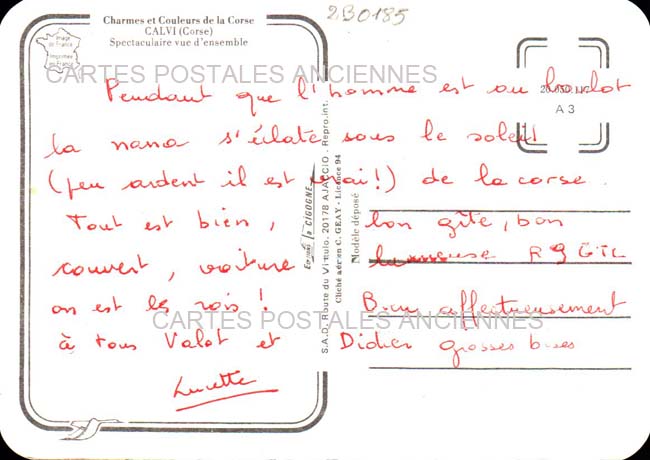 Charmes et Couleurs de la Corse
CALVI (Corse)
Spectaculaire vue d'ensemble
2B0185
Image de France
Imprimée en France
CARTES POSTALES ANCIENNES
A 3
Pendant que l'homme est au boulot
la nana s'éclate sous le soleil
(peu ardent il est vrai !) de la corse.
Tout est bien, bon gîte, bon
couvert, voiture R 9 GTL
on est les rois ! Bien affectueusement
à tous Valot et Didier grosses bises
Lucette
CARTES POSTALES ANCIENNES
la cigogne
S.A.D. Route du Vittulo. 20178 AJACCIO - Repro.int.
Cliché aérien C. GEAY - Licence 94
Modèle déposé